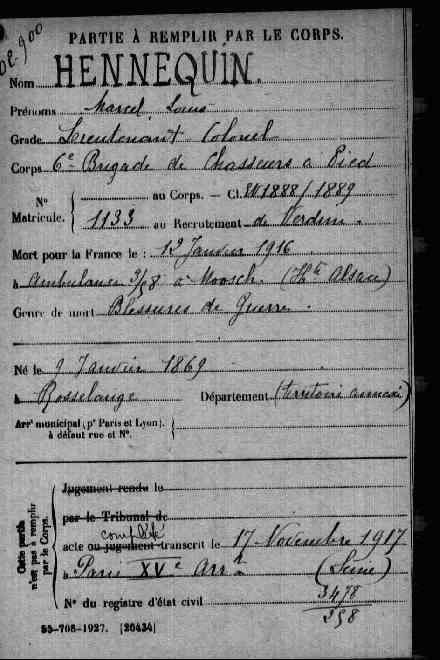 PARTIE À REMPLIR PAR LE CORPS.
Nom HENNEQUIN.
Prénoms Marcel Louis
Grade Lieutenant Colonel
Corps 6e Brigade de Chasseurs à Pied
No Matricule. { au Corps. — Cl. 1888/1889
1133 au Recrutement de Verdun.
Mort pour la France le : 12 Janvier 1916
à Ambulance 3/58 à Moosch. (Hte Alsace)
Genre de mort Blessures de Guerre.
Né le 9 Janvier 1869
à Rosselange Département (territoire annexé)
Arrt municipal (pr Paris et Lyon), à défaut rue et No. {
Cette partie n'est pas à remplir par le Corps.
Jugement rendu le
par le Tribunal de
complété
acte ou jugement transcrit le 17 Novembre 1917
à Paris XVe Arrt (Seine)
No du registre d'état civil 3478
358
55-708-1927. [26434]